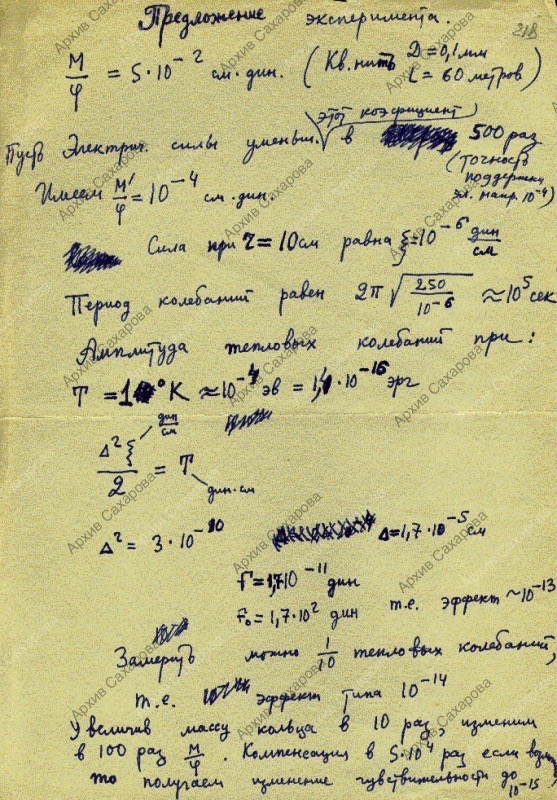 Предложение эксперимента.
218
M/φ = 5·10⁻² см. дин. (Кв. нить D = 0,1 мм
L = 60 метров)
этот коэфициент
Пусть Электрич. силы уменьш. в 500 раз
(точность поддержки эл. напр. 10⁻⁴)
Имеем M'/φ = 10⁻⁴ см. дин.
Сила при r = 10 см равна ξ = 10⁻⁶ дин/см
Период колебаний равен 2π √(250/10⁻⁶) ≈ 10⁵ сек
Амплитуда тепловых колебаний при:
T = 1° K ≈ 10⁻⁴ эв = 1,4 · 10⁻¹⁶ эрг
дин/см
Δ²ξ/2 = T
дин·см
Δ² = 3·10⁻¹⁰ Δ = 1,7·10⁻⁵ см
f = 1,7 10⁻¹¹ дин
f₀ = 1,7·10² дин т.е. эффект ~10⁻¹³
Замерить можно 1/10 тепловых колебаний,
т.е. эффект типа 10⁻¹⁴
Увеличив массу кольца в 10 раз, изменим
в 100 раз M/φ. Компенсация в 5·10⁴ раз если
то получаем изменение чувствительности до 10⁻¹⁵
Архив Сахарова